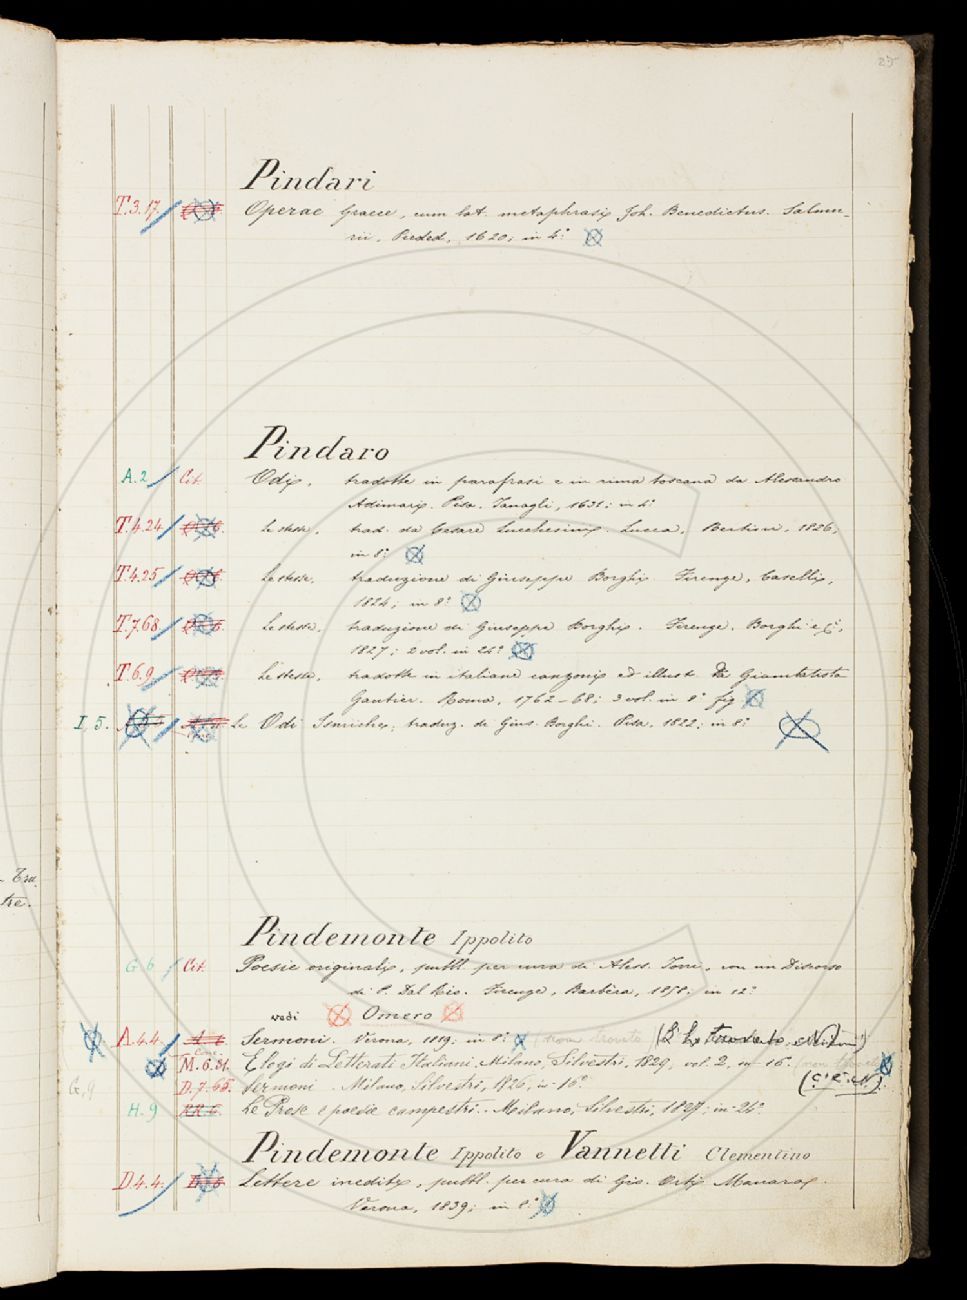 25
Pindari
T.3.17 Operae Graece, cum lat. metaphrasi Joh. Benedictus. Salmu-
rii, 1620; in 4º
Pindaro
A.2 Cit. Odi, tradotte in parafrasi e in rima toscana da Alessandro
Adimari. Pisa, Tanagli, 1631; in 4º
T.4.24 Le stesse, trad. da Cesare Lucchesini. Lucca, Bertini, 1826,
in 8º
T.4.25 Le stesse, traduzione di Giuseppe Borghi. Firenze, Caselli,
1824; in 8º
T.7.68 Le stesse, traduzione di Giuseppe Borghi. Firenze, Borghi e C.,
1827; 2 vol. in 24º
T.6.9 Le stesse, tradotte in italiane canzoni ed illust. da Giambatista
Gautier. Roma, 1762-68; 3 vol. in 8º fig
I 5. Le Odi Ismiche, traduz. di Gius. Borghi. Pisa, 1822; in 8º
Pindemonte Ippolito
G.6 Cit. Poesie originali, pubbl. per cura di Aless. Torri, con un Discorso
di P. Dal Rio. Firenze, Barbèra, 1858; in 12º
vedi Omero
A.4.4. Sermoni. Verona, 1819; in 8º (non trovato)
M.6.81. Elogi di Letterati Italiani. Milano, Silvestri, 1829, vol. 2, in 16.
G.9 D.7.65. Sermoni. Milano, Silvestri, 1826, in 16º (C'è. N.)
H.9 Le Prose e poesie campestri. Milano, Silvestri, 1827; in 24º
Pindemonte Ippolito e Vannetti Clementino
D.4.4. Lettere inedite, pubbl. per cura di Gio. Orti Manara.
Verona, 1839; in 8º